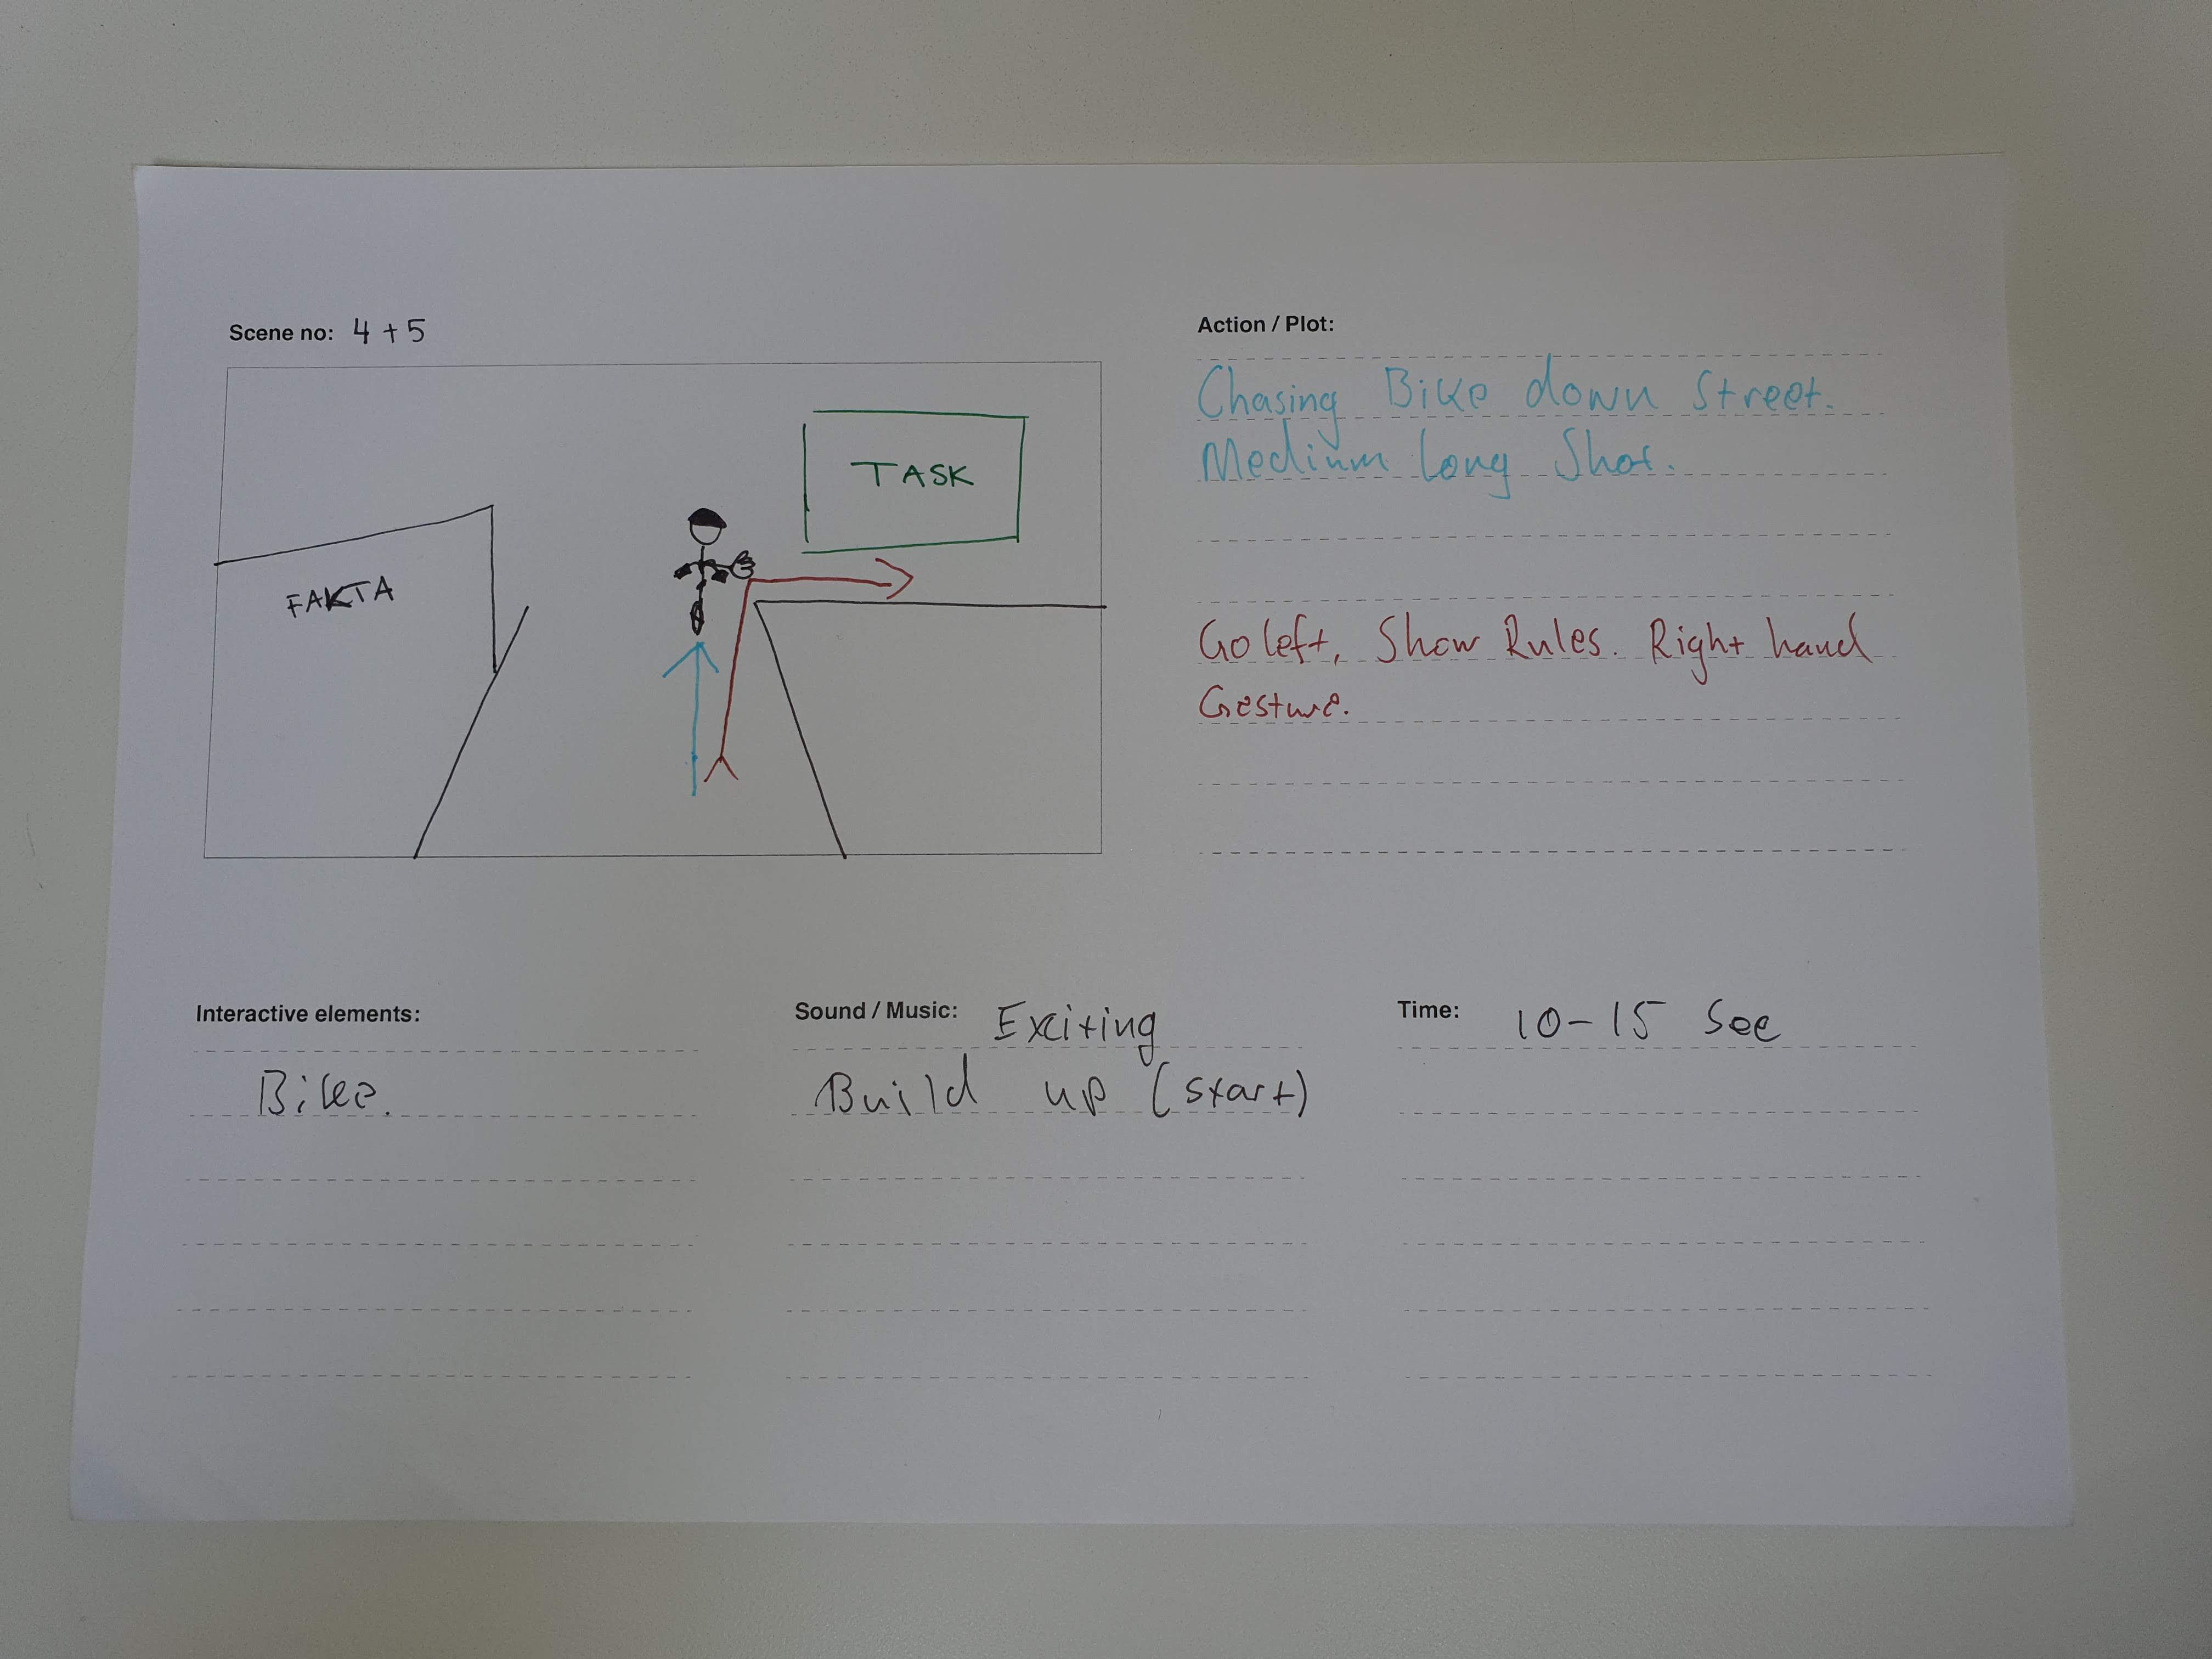 Scene no: 4 + 5
FAKTA
TASK
Action / Plot:
Chasing Bike down Street.
Medium long Shot.
Go left, Show Rules. Right hand
Gesture.
Interactive elements:
Bike.
Sound / Music: Exciting
Build up (start)
Time: 10-15 Sec